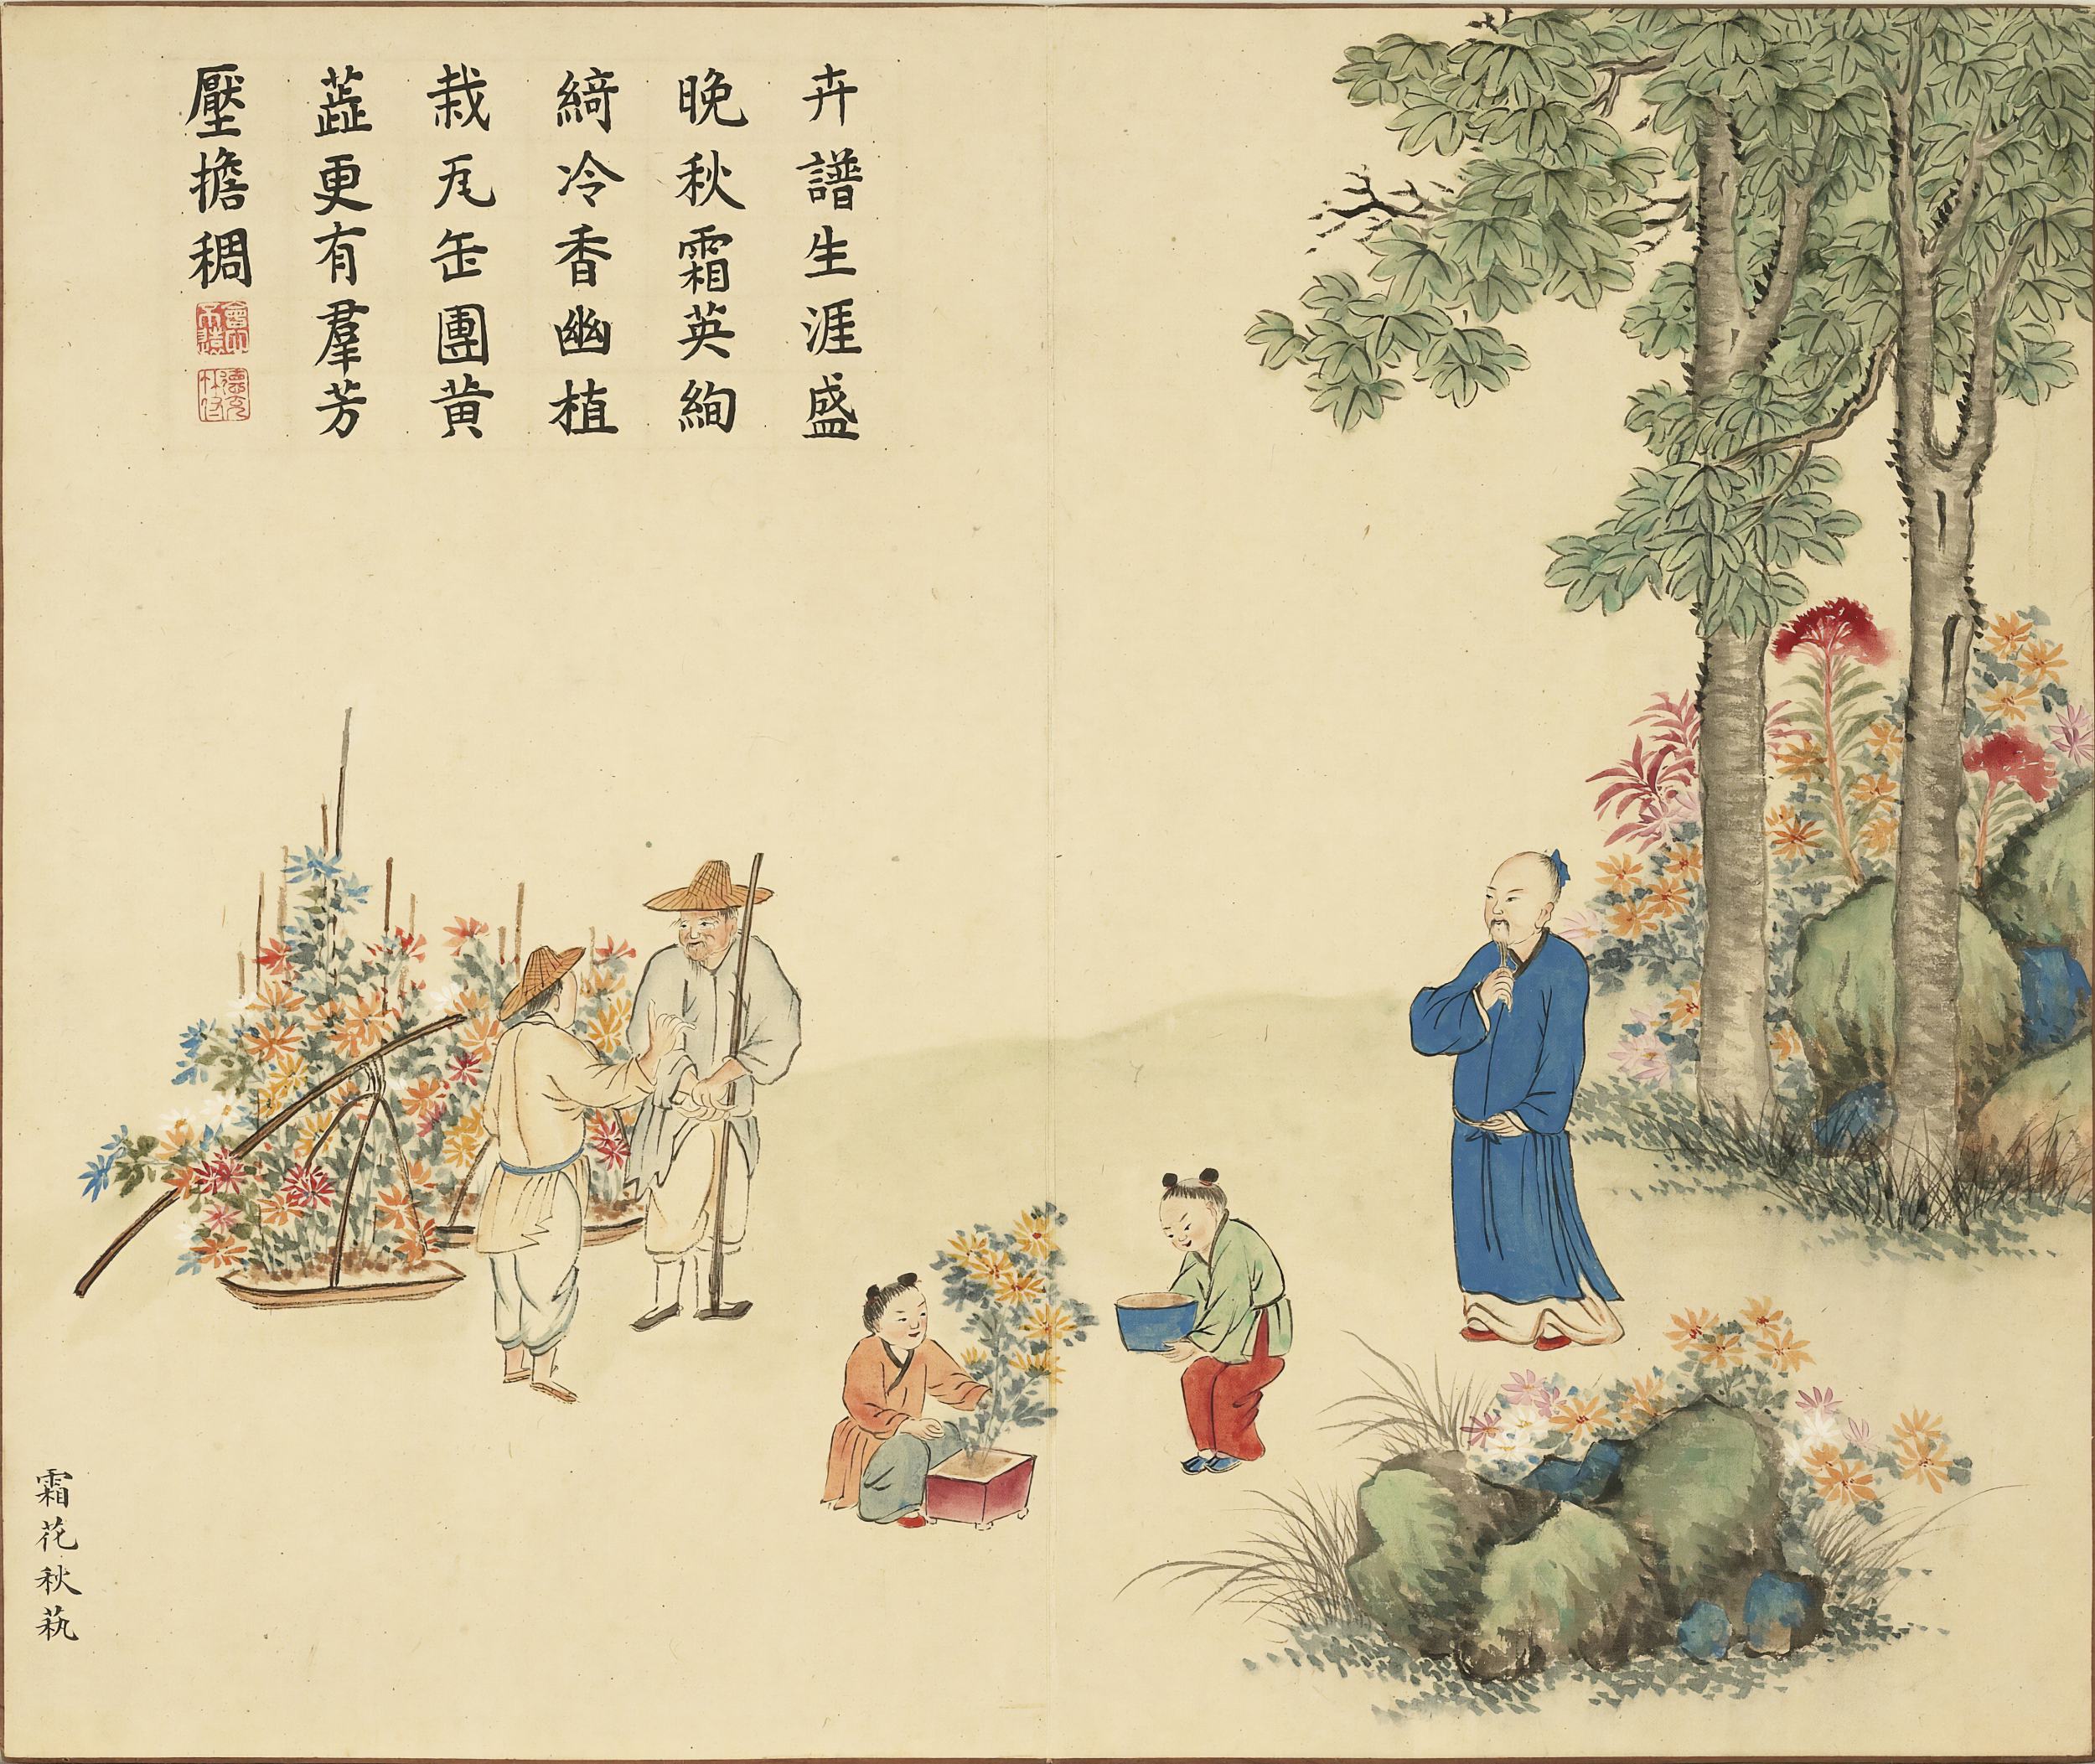 卉譜生涯盛
晚秋霜英絢
綺冷香幽植
栽瓦缶團黄
蕋更有羣芳
壓擔稠
霜花秋蓺